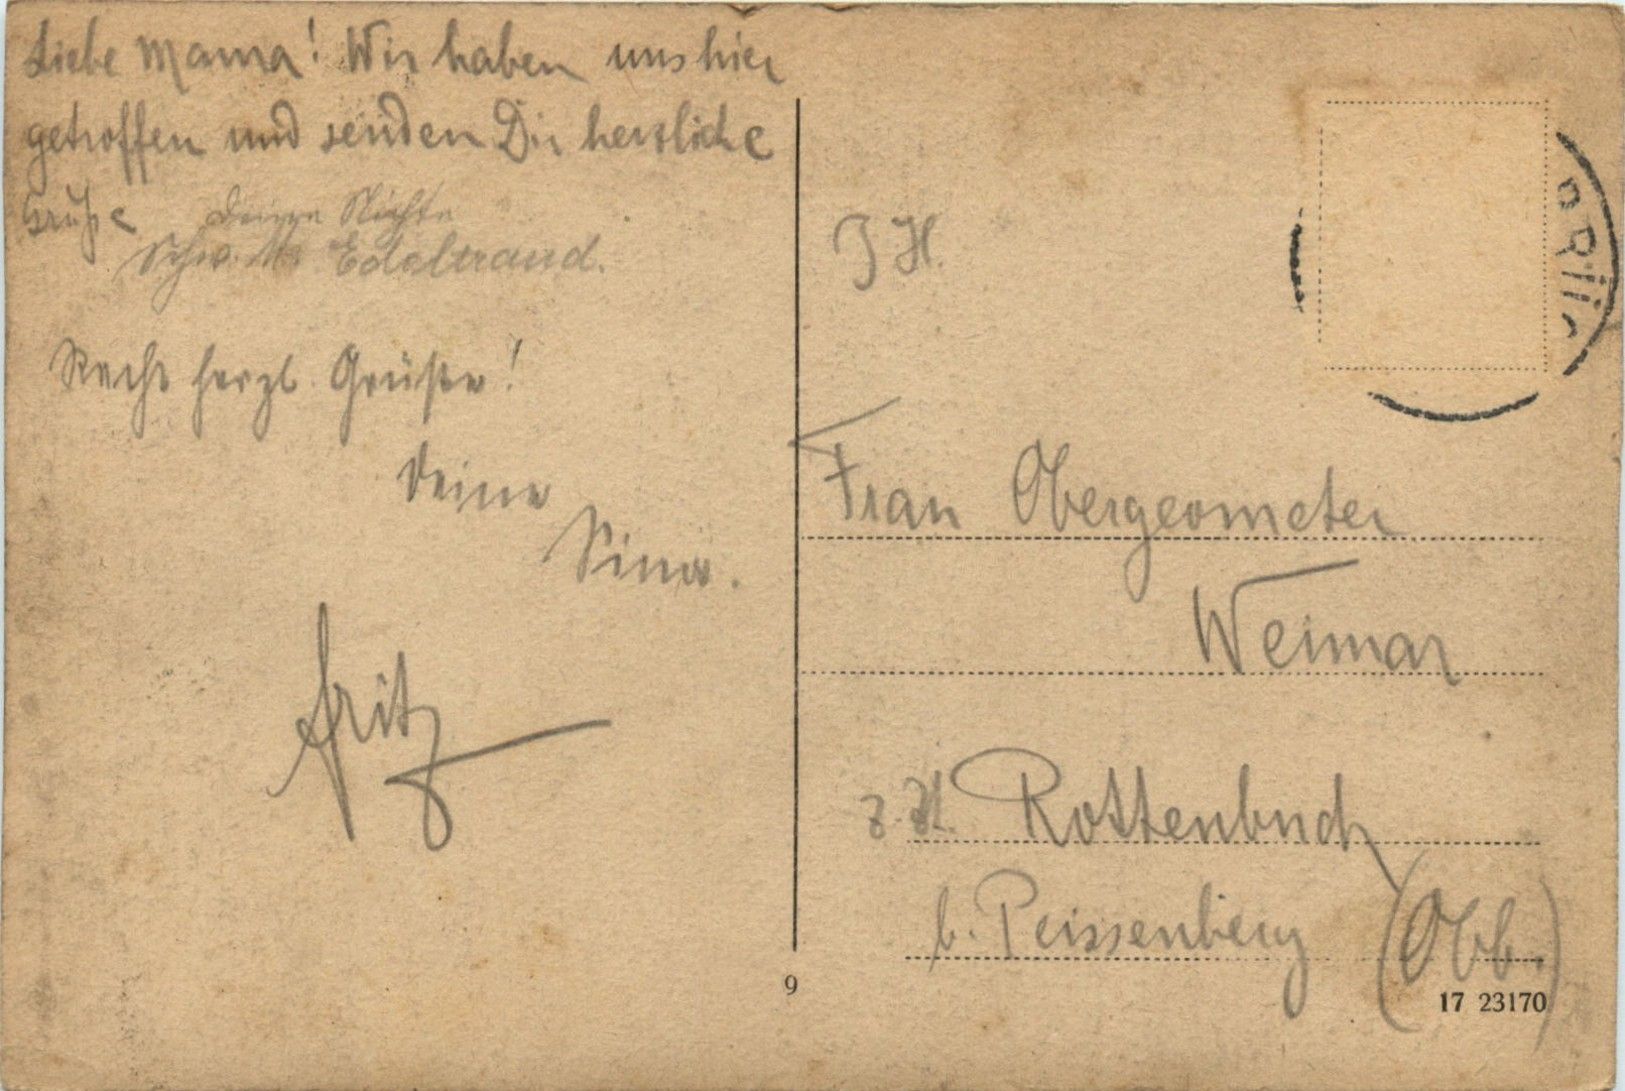 Liebe Mama! Wir haben uns hier
getroffen und senden Dir herzliche
Grüße
Deine Nichte
Schw. M. Edeltraud.
Recht herzl. Grüße!
Deine
Fritz
I H.
Frau Obergeometer
Weimar
z. Zt. Rottenbuch
b. Peissenberg (Obb.)
9
17 23170